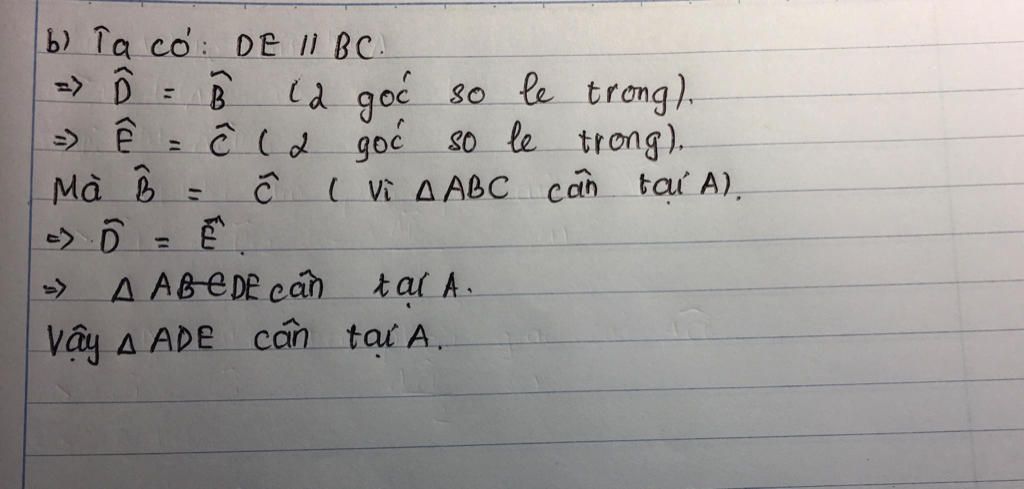 b) Ta có: DE // BC.
=> D̂ = B̂ (2 góc so le trong).
=> Ê = Ĉ (2 góc so le trong).
Mà B̂ = Ĉ (vì Δ ABC cân tại A).
=> D̂ = Ê.
=> Δ ABCDE cân tại A.
Vậy Δ ADE cân tại A.